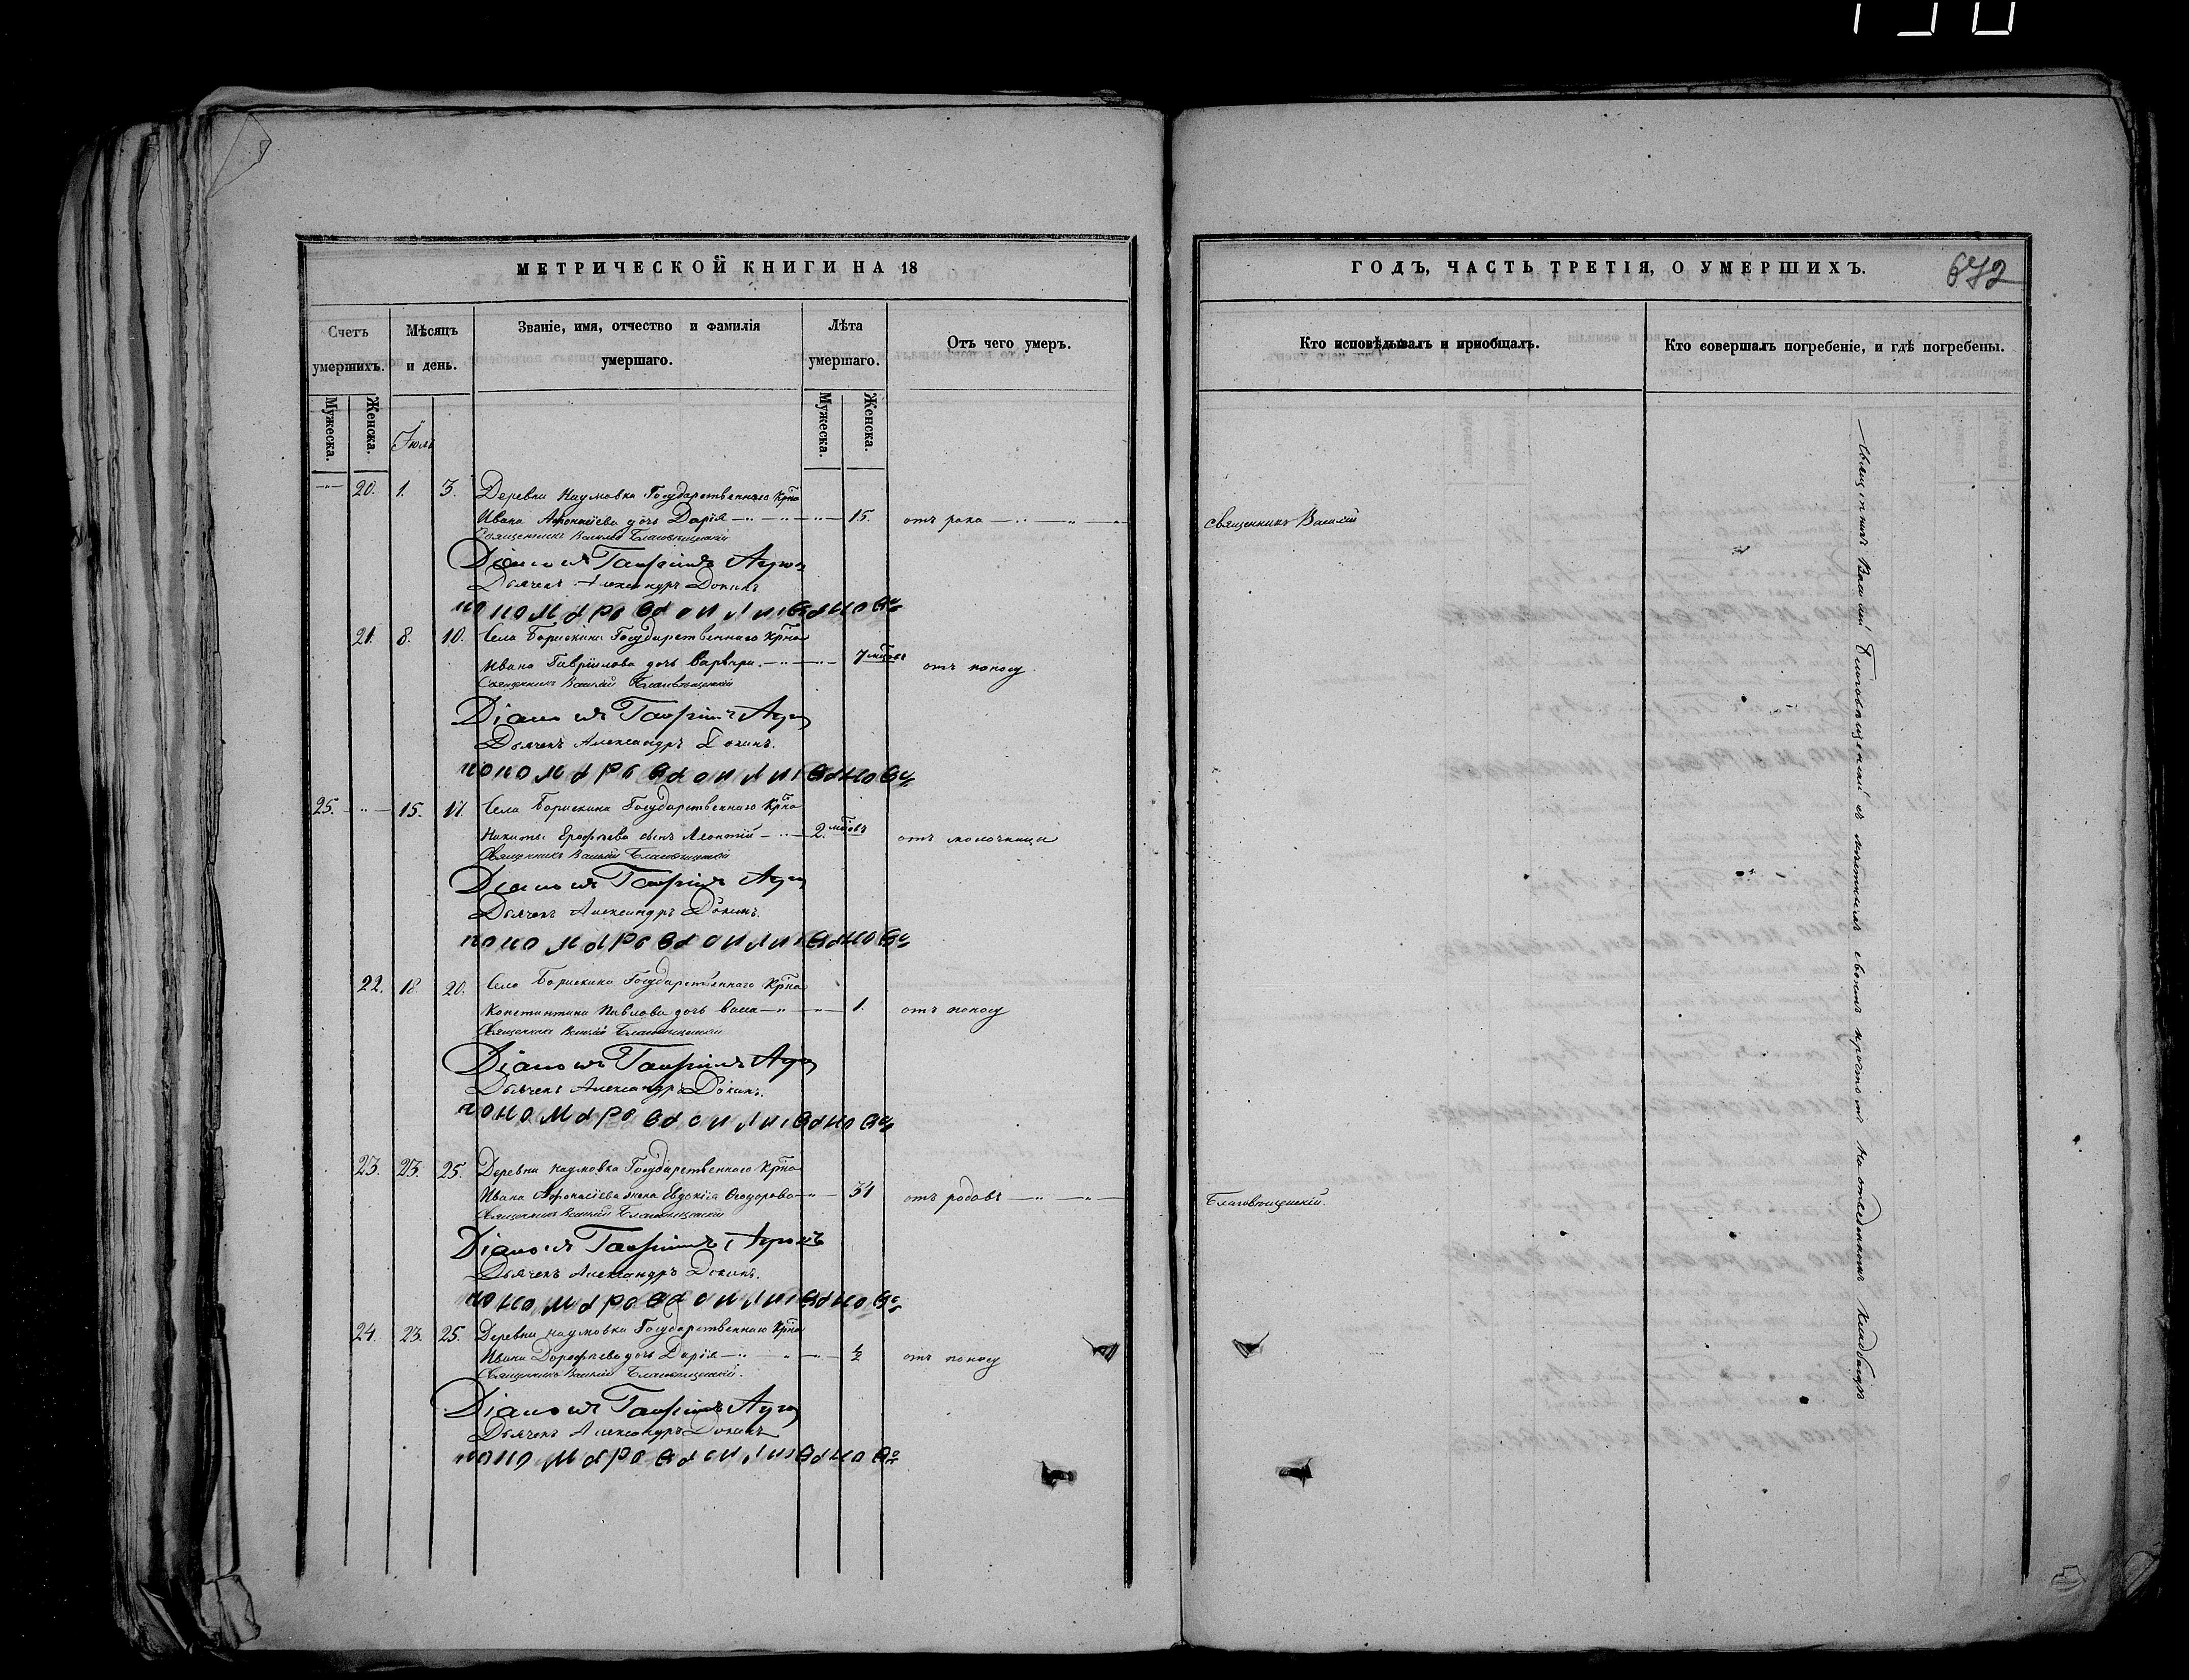 МЕТРИЧЕСКОЙ КНИГИ НА 18
Счетъ умершихъ.
Мѣсяцъ и день.
Званіе, имя, отчество и фамилія умершаго.
Лѣта умершаго.
Отъ чего умеръ.
Мужеска.
Женска.
Мужеска.
Женска.
Іюль
20. 1. 3. Деревни Наумовка Государственнаго Крна
Ивана Афонасіева дочь Дарія 15. отъ рака
Священникъ Василій Благовѣщенскій
Діаконъ Гавріилъ
Дьячекъ Александръ Докинъ
пономарь василий
21. 8. 10. Села Борискина Государственнаго Крна
Ивана Гавріилова дочь Варвара 7 мцовъ отъ поносу
Священникъ Василій Благовѣщенскій
Діаконъ Гавріилъ
Дьячекъ Александръ Докинъ.
пономарь василий
25. 15. 17. Села Борискина Государственнаго Крна
Никиты Ерофѣева сынъ Леонтій 2. мцовъ отъ молочницы
Священникъ Василій Благовѣщенскій
Діаконъ Гавріилъ
Дьячекъ Александръ Докинъ.
пономарь василий
22. 18. 20. Села Борискина Государственнаго Крна
Константина Павлова дочь 1. отъ поносу
Священникъ Василій Благовѣщенскій
Діаконъ Гавріилъ
Дьячекъ Александръ Докинъ.
пономарь василий
23. 23. 25. Деревни Наумовка Государственнаго Крна
Ивана Афонасіева жена Евдокія Ѳеодорова 34 отъ родовъ
Священникъ Василій Благовѣщенскій
Діаконъ Гавріилъ
Дьячекъ Александръ Докинъ.
пономарь василий
24. 23. 25. Деревни Наумовка Государственнаго Крна
Ивана Дорофѣева дочь Дарія ½ отъ поносу
Священникъ Василій Благовѣщенскій.
Діаконъ Гавріилъ
Дьячекъ Александръ Докинъ
пономарь василий
ГОДЪ, ЧАСТЬ ТРЕТІЯ, О УМЕРШИХЪ.
672
Кто исповѣдывалъ и пріобщалъ.
Кто совершалъ погребеніе, и гдѣ погребены.
священникъ Василій
Благовѣщенскій.
Священникъ Василій Благовѣщенскій съ причтомъ на отведенномъ кладбищѣ